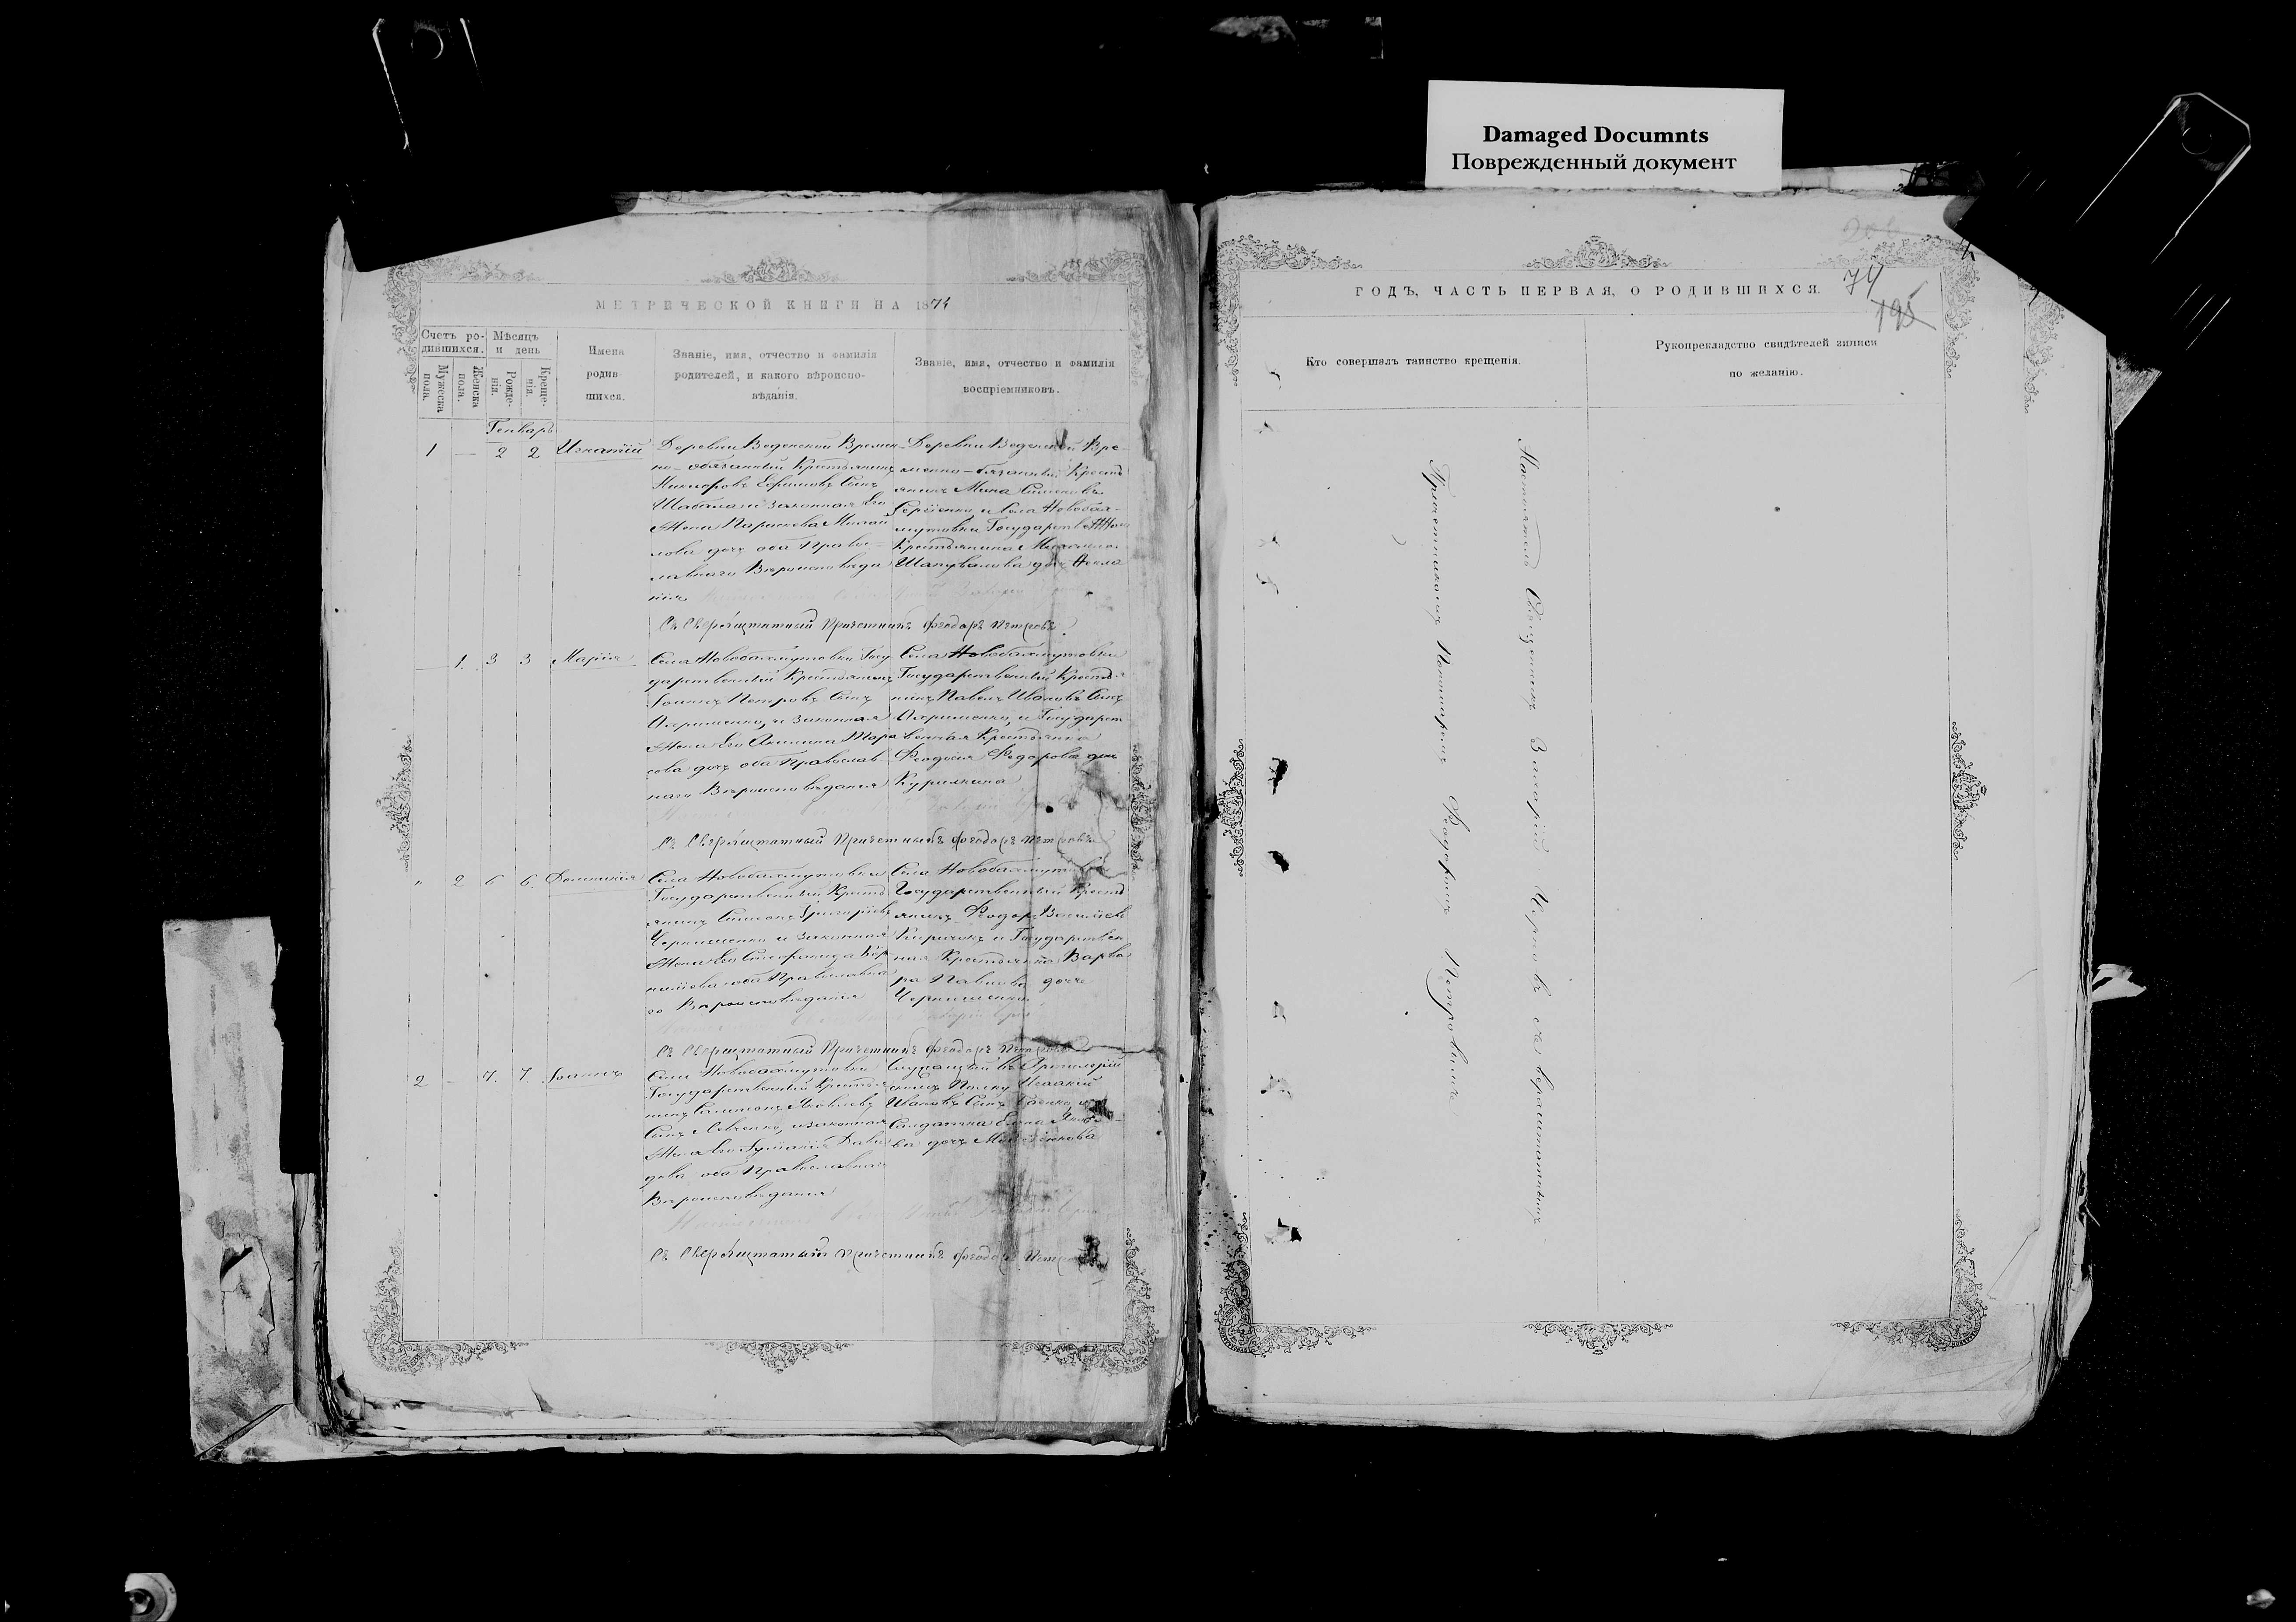 Damaged Documnts
Поврежденный документ
МЕТРИЧЕСКОЙ КНИГИ НА 1874
Счетъ ро-
дившихся.
Мужеска пола.
Женска пола.
Мѣсяцъ
и день
Рожде-
нія.
Креще-
нія.
Имена
родив-
шихся.
Званіе, имя, отчество и фамилія
родителей, и какого вѣроиспо-
вѣданія.
Званіе, имя, отчество и фамилія
воспріемниковъ.
Генварь
1 — 2 2 Игнатій
Деревни Веденской Времен-
но-обязанный Крестьянинъ
Никифоръ Ефимовъ Сынъ
Шабала и законная Его
Жена Параскева Михай
лова дочь оба Право-
славнаго Вѣроисповѣда
нія
Деревни Веденской Вре-
менно-обязанный Крест
янинъ Мина Симеоновъ
и Села Новобах-
мутовки Государств
Крестьянина
Шаповалова дочь Фекла
Св Сверхштатный Причетникъ Феодоръ Петровъ
— 1. 3 3 Марія
Села Новобахмутовки Госу
дарственный Крестьянинъ
Іоаннъ Петровъ Сынъ
Охрименко, и законная
Жена Его Акилина Тара
сова дочь оба Православ-
наго Вѣроисповѣданія
Села Новобахмутовки
Государственный Крестья
нинъ Павелъ Ивановъ Сынъ
Охрименко, и Государст
венная Крестьянка
Феодосія Федорова дочь
Курилкина
Св Сверхштатный Причетникъ Феодоръ Петровъ
" 2 6 6. Домникія
Села Новобахмутовки
Государственный Крестъ
янинъ Симеонъ Григоріевъ
Чернышенко и законная
Жена Его Стефанида Кор
ниліева оба Православна
го Вѣроисповѣданія
Села Новобахмутовки
Государственный Крест
янинъ Феодоръ Василіевъ
Киричокъ и Государствен
ная Крестьянка Варва
ра Павлова дочь
Чернышенко
Св Сверхштатный Причетникъ Феодоръ Петровъ
2 — 7. 7. Іоаннъ
Села Новобахмутовки
Государственный Крестья
нинъ Симеонъ Яковлевъ
Сынъ Левченко, и законная
Жена Его Дави
дова оба Православнаго
Вѣроисповѣданія
Служащій въ Артилерій
скомъ Полку Исаакій
Ивановъ Сынъ
Солдатка Елена Яковле
ва дочь
Св Сверхштатный Причетникъ Феодоръ Петровъ
ГОДЪ, ЧАСТЬ ПЕРВАЯ, О РОДИВШИХСЯ.
74
195
Кто совершалъ таинство крещенія.
Рукоприкладство свидѣтелей записи
по желанію.
Настоятель Священникъ Захарій Черновъ съ сверхштатнымъ
Причетникомъ Пономаремъ Феодоромъ Петровымъ